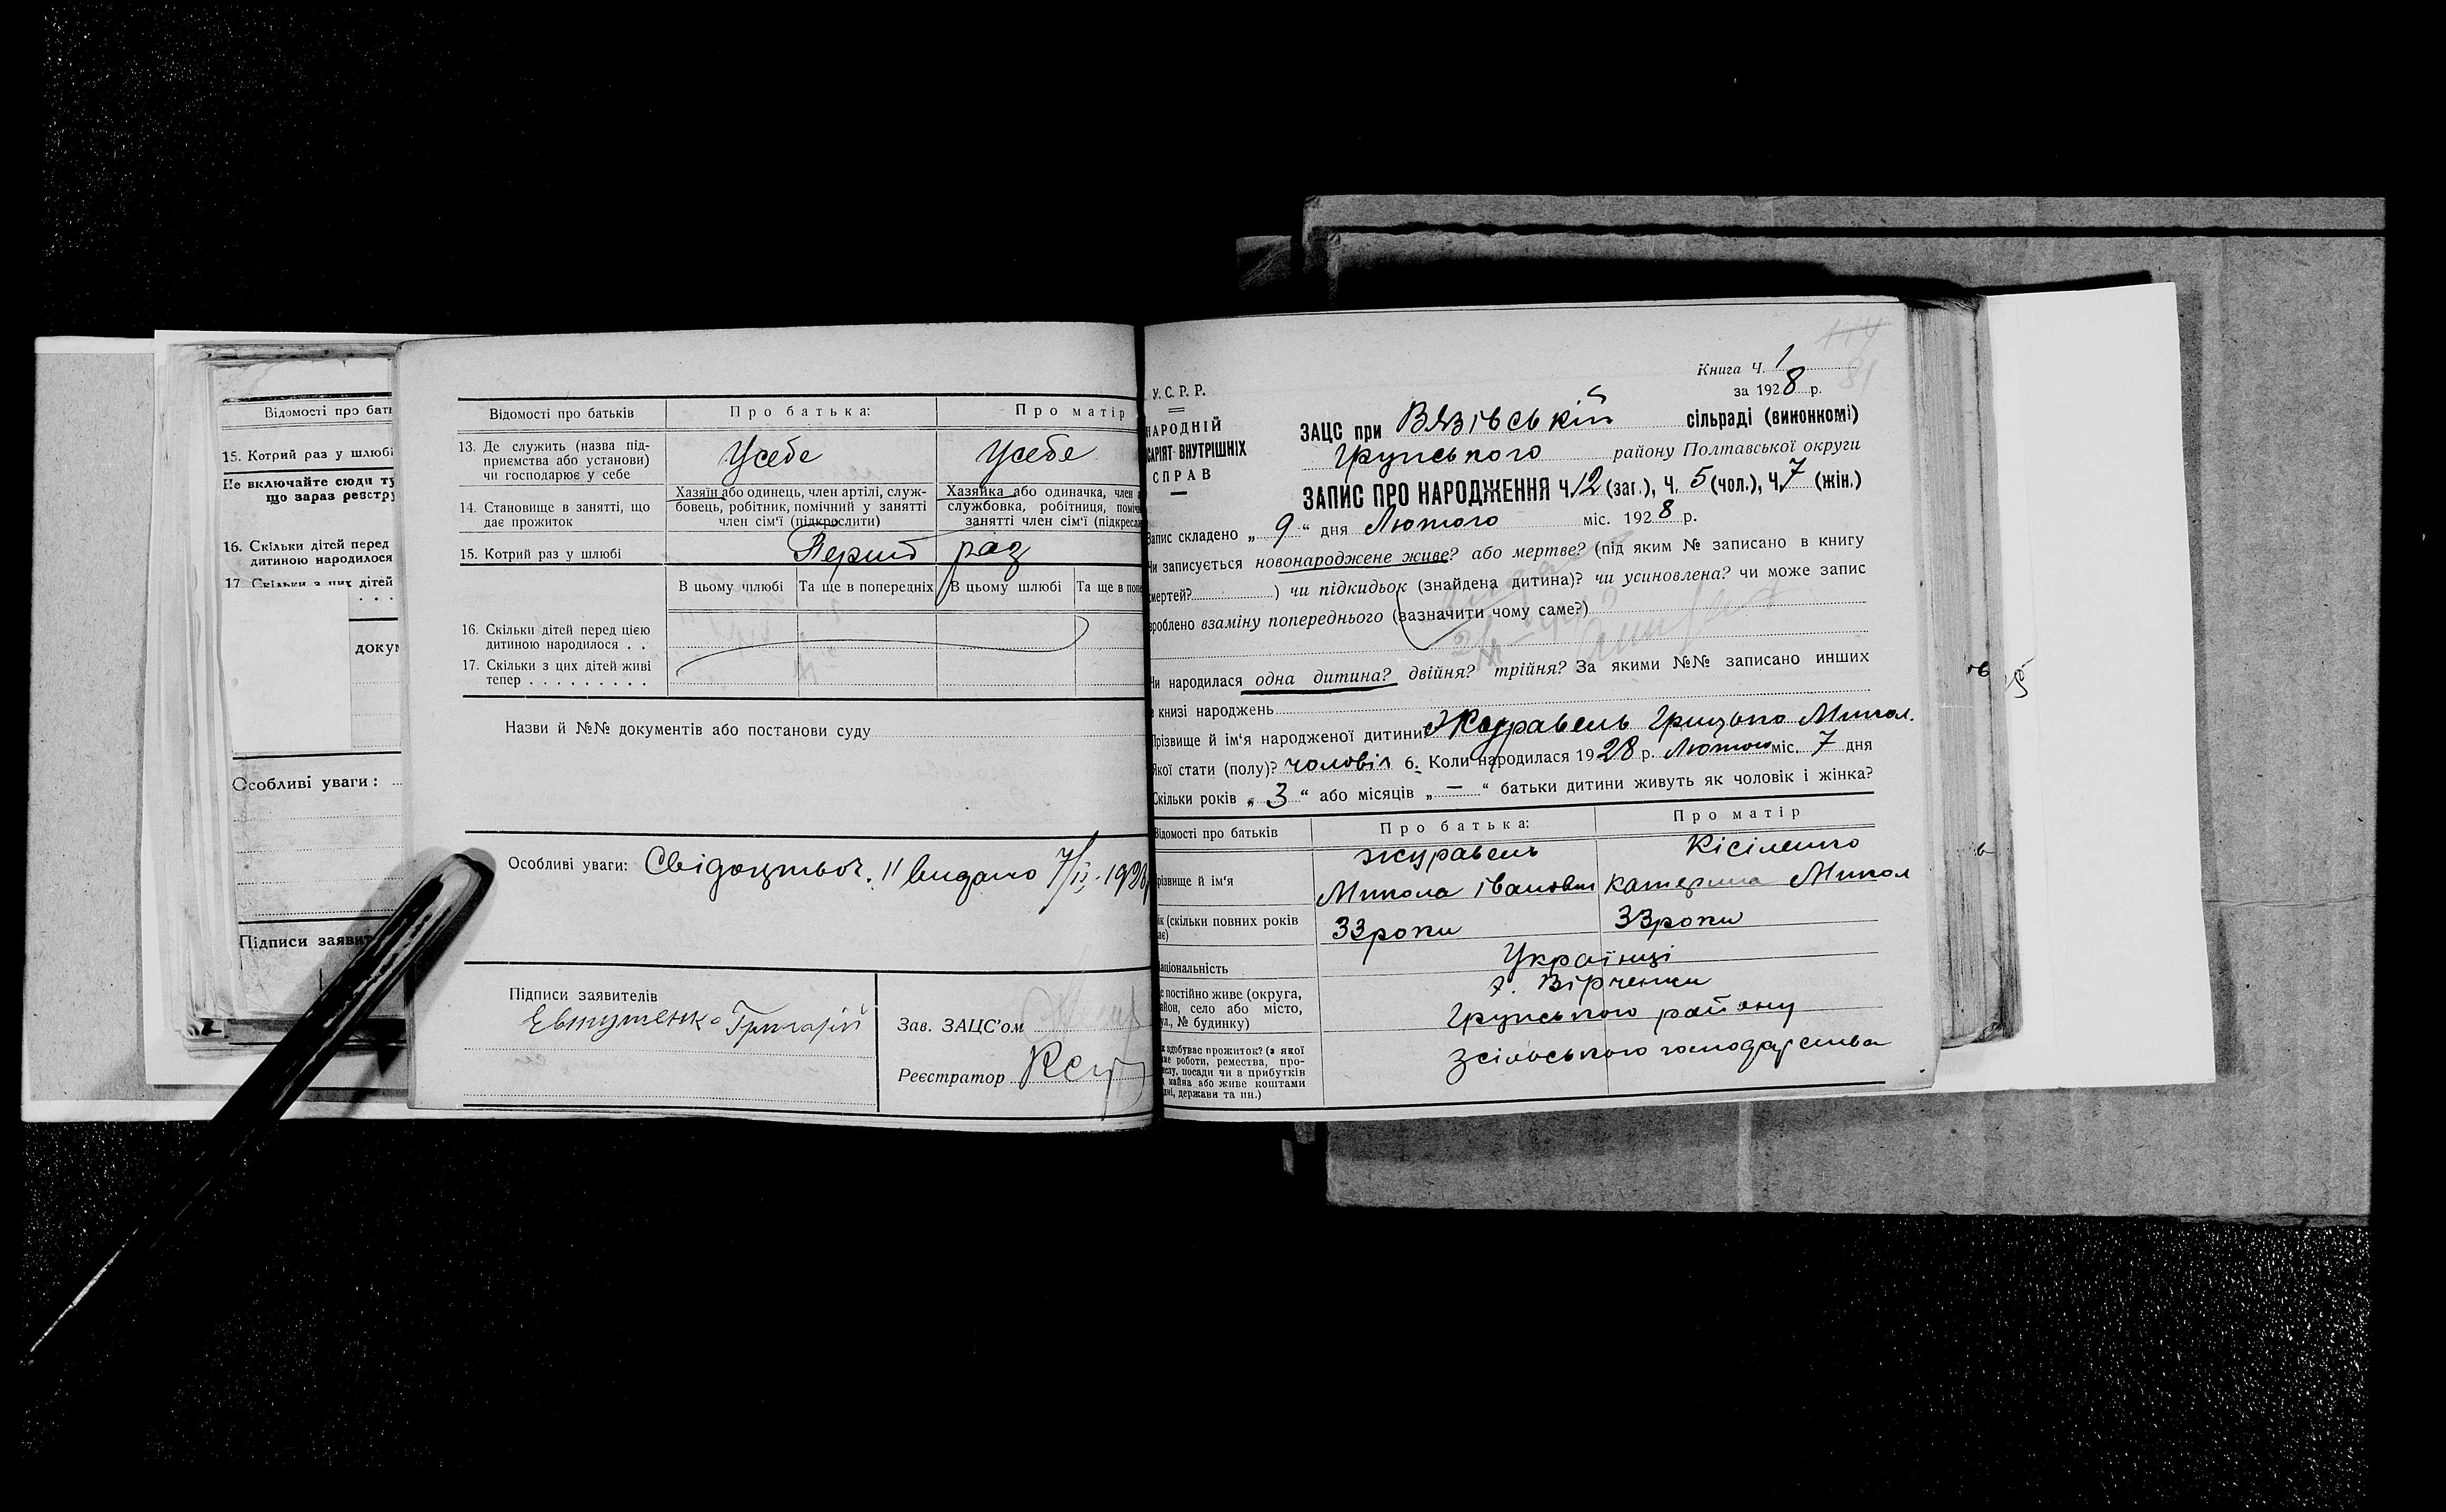 Відомості про бать
15. Котрий раз у шлюбі
Не включайте сюди ту
що зараз реєстру
16. Скільки дітей перед
дитиною народилося
17. Скільки з цих дітей
. . .
докум
Особливі уваги:
Підписи заявит
Відомості про батьків
Про батька:
Про матір
13. Де служить (назва під-
приємства або установи)
чи господарює у себе
Усебе
Усебе
14. Становище в занятті, що
дає прожиток
Хазяїн або одинець, член артілі, служ-
бовець, робітник, помічний у занятті
член сім'ї (підкреслити)
Хазяйка або одиначка, член а
службовка, робітниця, поміч
занятті член сім'ї (підкресл
15. Котрий раз у шлюбі
Перший раз
В цьому шлюбі
Та ще в попередніх
В цьому шлюбі
Та ще в попе
16. Скільки дітей перед цією
дитиною народилося . .
17. Скільки з цих дітей живі
тепер . . . . . . . . .
Назви й №№ документів або постанови суду
Особливі уваги: Свідоцтво ч. 11 видано 7/II-1928
Підписи заявителів
Евтушенко Григорій
Зав. ЗАЦС'ом
Реєстратор
114
81
Книга Ч. 1
за 1928 р.
У.С.Р.Р.
НАРОДНІЙ
САРІЯТ ВНУТРІШНІХ
СПРАВ
ЗАЦС при Вязівській сільраді (виконкомі)
Грунського району Полтавської округи
ЗАПИС ПРО НАРОДЖЕННЯ Ч. 12 (заг.), Ч. 5 (чол.), Ч. 7 (жін.)
Запис складено „ 9 “ дня Лютого міс. 1928 р.
Чи записується новонароджене живе? або мертве? (під яким № записано в книгу
смертей? ) чи підкидьок (знайдена дитина)? чи усиновлена? чи може запис
зроблено взаміну попереднього (зазначити чому саме?)
Чи народилася одна дитина? двійня? трійня? За якими №№ записано инших
в книзі народжень
Прізвище й ім'я народженої дитини Журавель Грицько Микол.
Якої стати (полу)? чоловіч 6. Коли народилася 1928 р. Лютого міс. 7 дня
Скільки років „ 3 “ або місяців „ — “ батьки дитини живуть як чоловік і жінка?
Відомості про батьків
Про батька:
Про матір
Прізвище й ім'я
Журавель
Микола Іванович
Кісіленко
Катерина Микол
ік (скільки повних років
має)
33 роки
33 роки
Національність
Українці
е постійно живе (округа,
айон, село або місто,
ул., № будинку)
х. Вірченки
Грунського району
к здобуває прожиток? (з якої
ме роботи, ремества, про-
мислу, посади чи з прибутків
майна або живе коштами
дні, держави та ин.)
Зсільського господарства